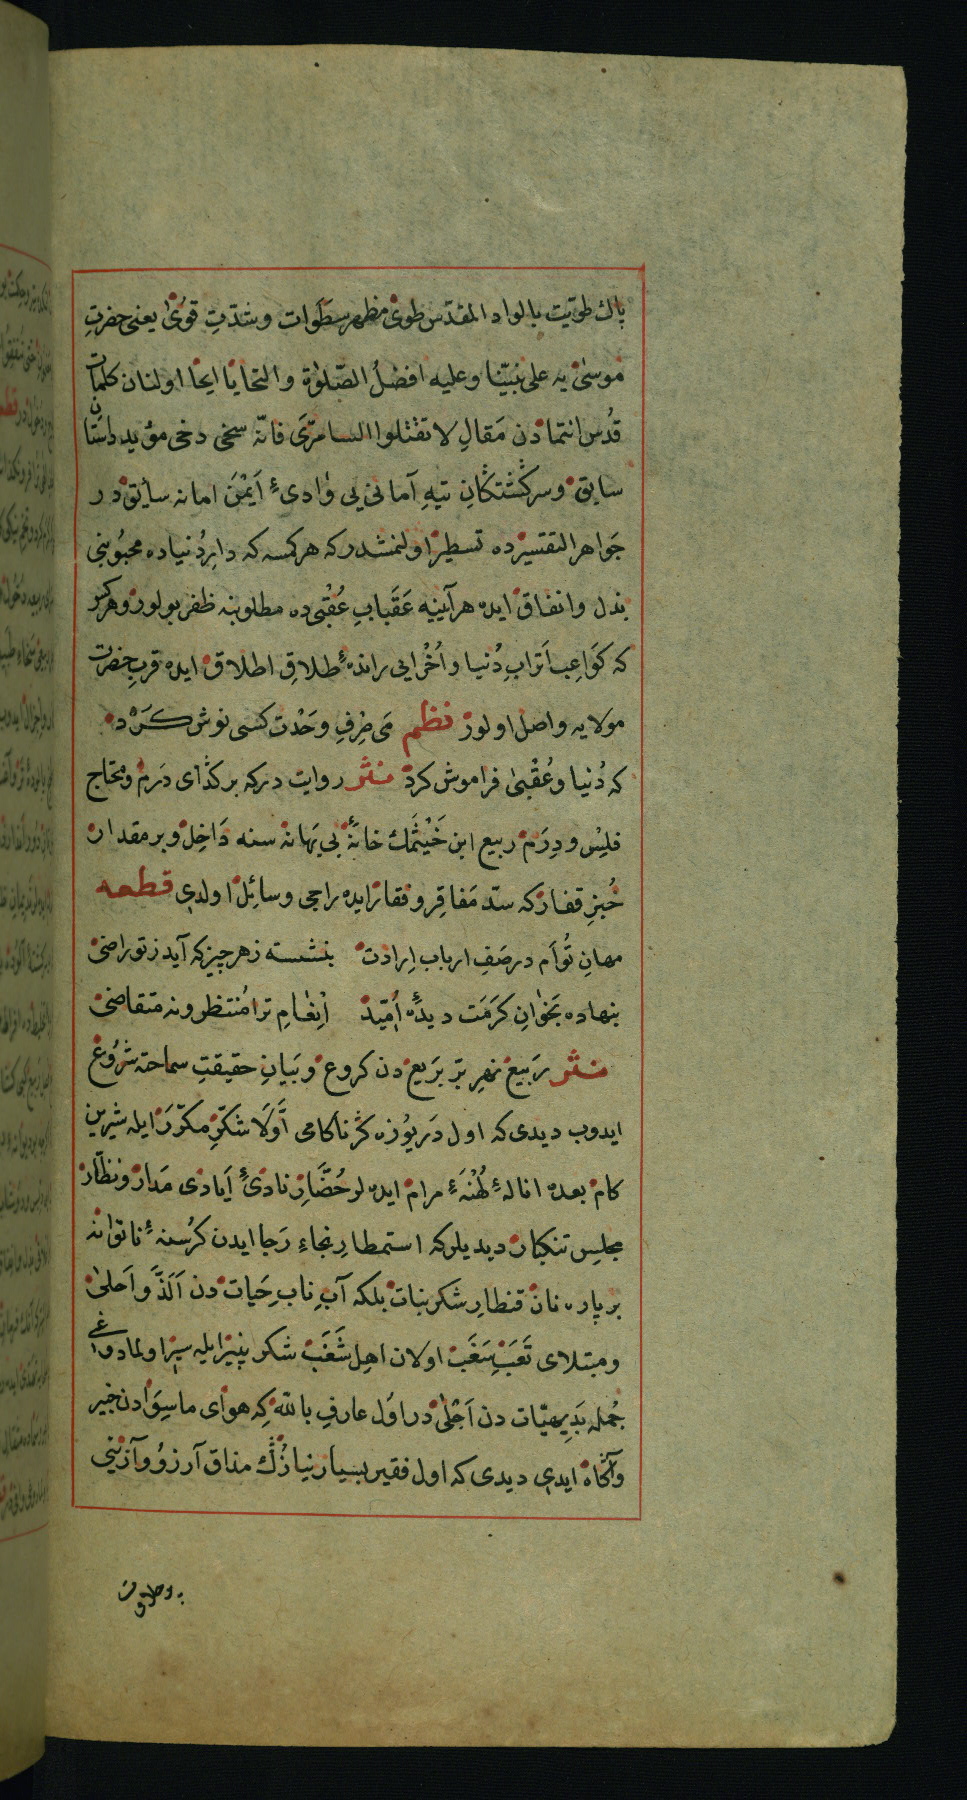 پاك طویّت بالواد المقدّس طوى مظهر سطَوَات وشدّتِ قوُىٰ یعنی حضرتِ
موسٰی یه علی نبیّنا وعلیه افضلُ الصّلوٰة والتحایا ایحا اولنان کلمات
قدُس انتمادن مَقالِ لا تقتلوا السامرّی فانّه سخی دخی مؤید داستان
سابق وسرکشتکانِ تیهِ آمانی یی وٰادیٔ اَیْمَنَ امانه سایٔق در
جَواهر التفسیرده تسطیر اولنمشدر که هر کسه که دارِدُنیاده محبُوبنی
بذل وانفاق ایده هرآیینه عَقَبابِ عُقْبی ده مطلوبنه ظفر بولور وهر کیم
که کَوَاعِبِ اَترابِ دُنیا واُخْرایی راندهٔ طلاقِ اطلاق ایده قربِ حضرت
مولایه واصل اولور نظم مَی صِرفِ وَحْدت کسی نوش کَرْد
که دُنیا وعُقْبیٰ فراموش کرد نثر روایت درکه برکدٰای دَرم ومحتاج
فلِیْس ودِرَم ربیع ابن خَیْثَمك خانهٔ بی بَهانه سنه دَاخِل وبر مقدار
خُبزِ قفار که سدّ مَفاقِر وفقار ایده راجی وسائِل اولدی قطعه
مهانِ تُواَم درصَفِ ارباب اِرادت بنشسته زهر چیز که آید زتو راضی
بنهاده بَخوٰانِ کرَمَت دیدهٔ اُمّید اِنْعٰامِ ترا مُنتظر ونه متقاضی
نثر رَبیع نهرِ برّ بَریع دن کروع وبَیانِ حقیقتِ سماحته شرُوع
ایدوب دیدی که اول دَریوُزه کر ناکامی اَوَّلَا شکرِ مکرّرَ ایله شیرین
کام بعده انالهٔ لُهْنَهٔ مرام ایده لر حُضّارِ نادیٔ اَیادی مَدار ونظّار
مجلِس تنکبار دیدیلر که استمطارِ نجاءِ رَجا ایدن کرُسنهٔ ناتوٰانه
بر پاره نان قنطارِ شکر نبات بلکه آبِ نابِ حَیات دن اَلَذَّ واَحلیٰ
ومبتلای تَعَبِ سَغَبْ اولان اهل شَغَبْ شکر پنیر ایله سیر اولمادوغی
جُمله بَدِیهیّات دن اَجْلیٰ در اول عارفِ باللّه که هوٰای ماسِوَادن خبیر
وآکاه ایدی دیدی که اول فقیر بسیار نیازك مذاق آرزوُ وآزینی
وحلاوت